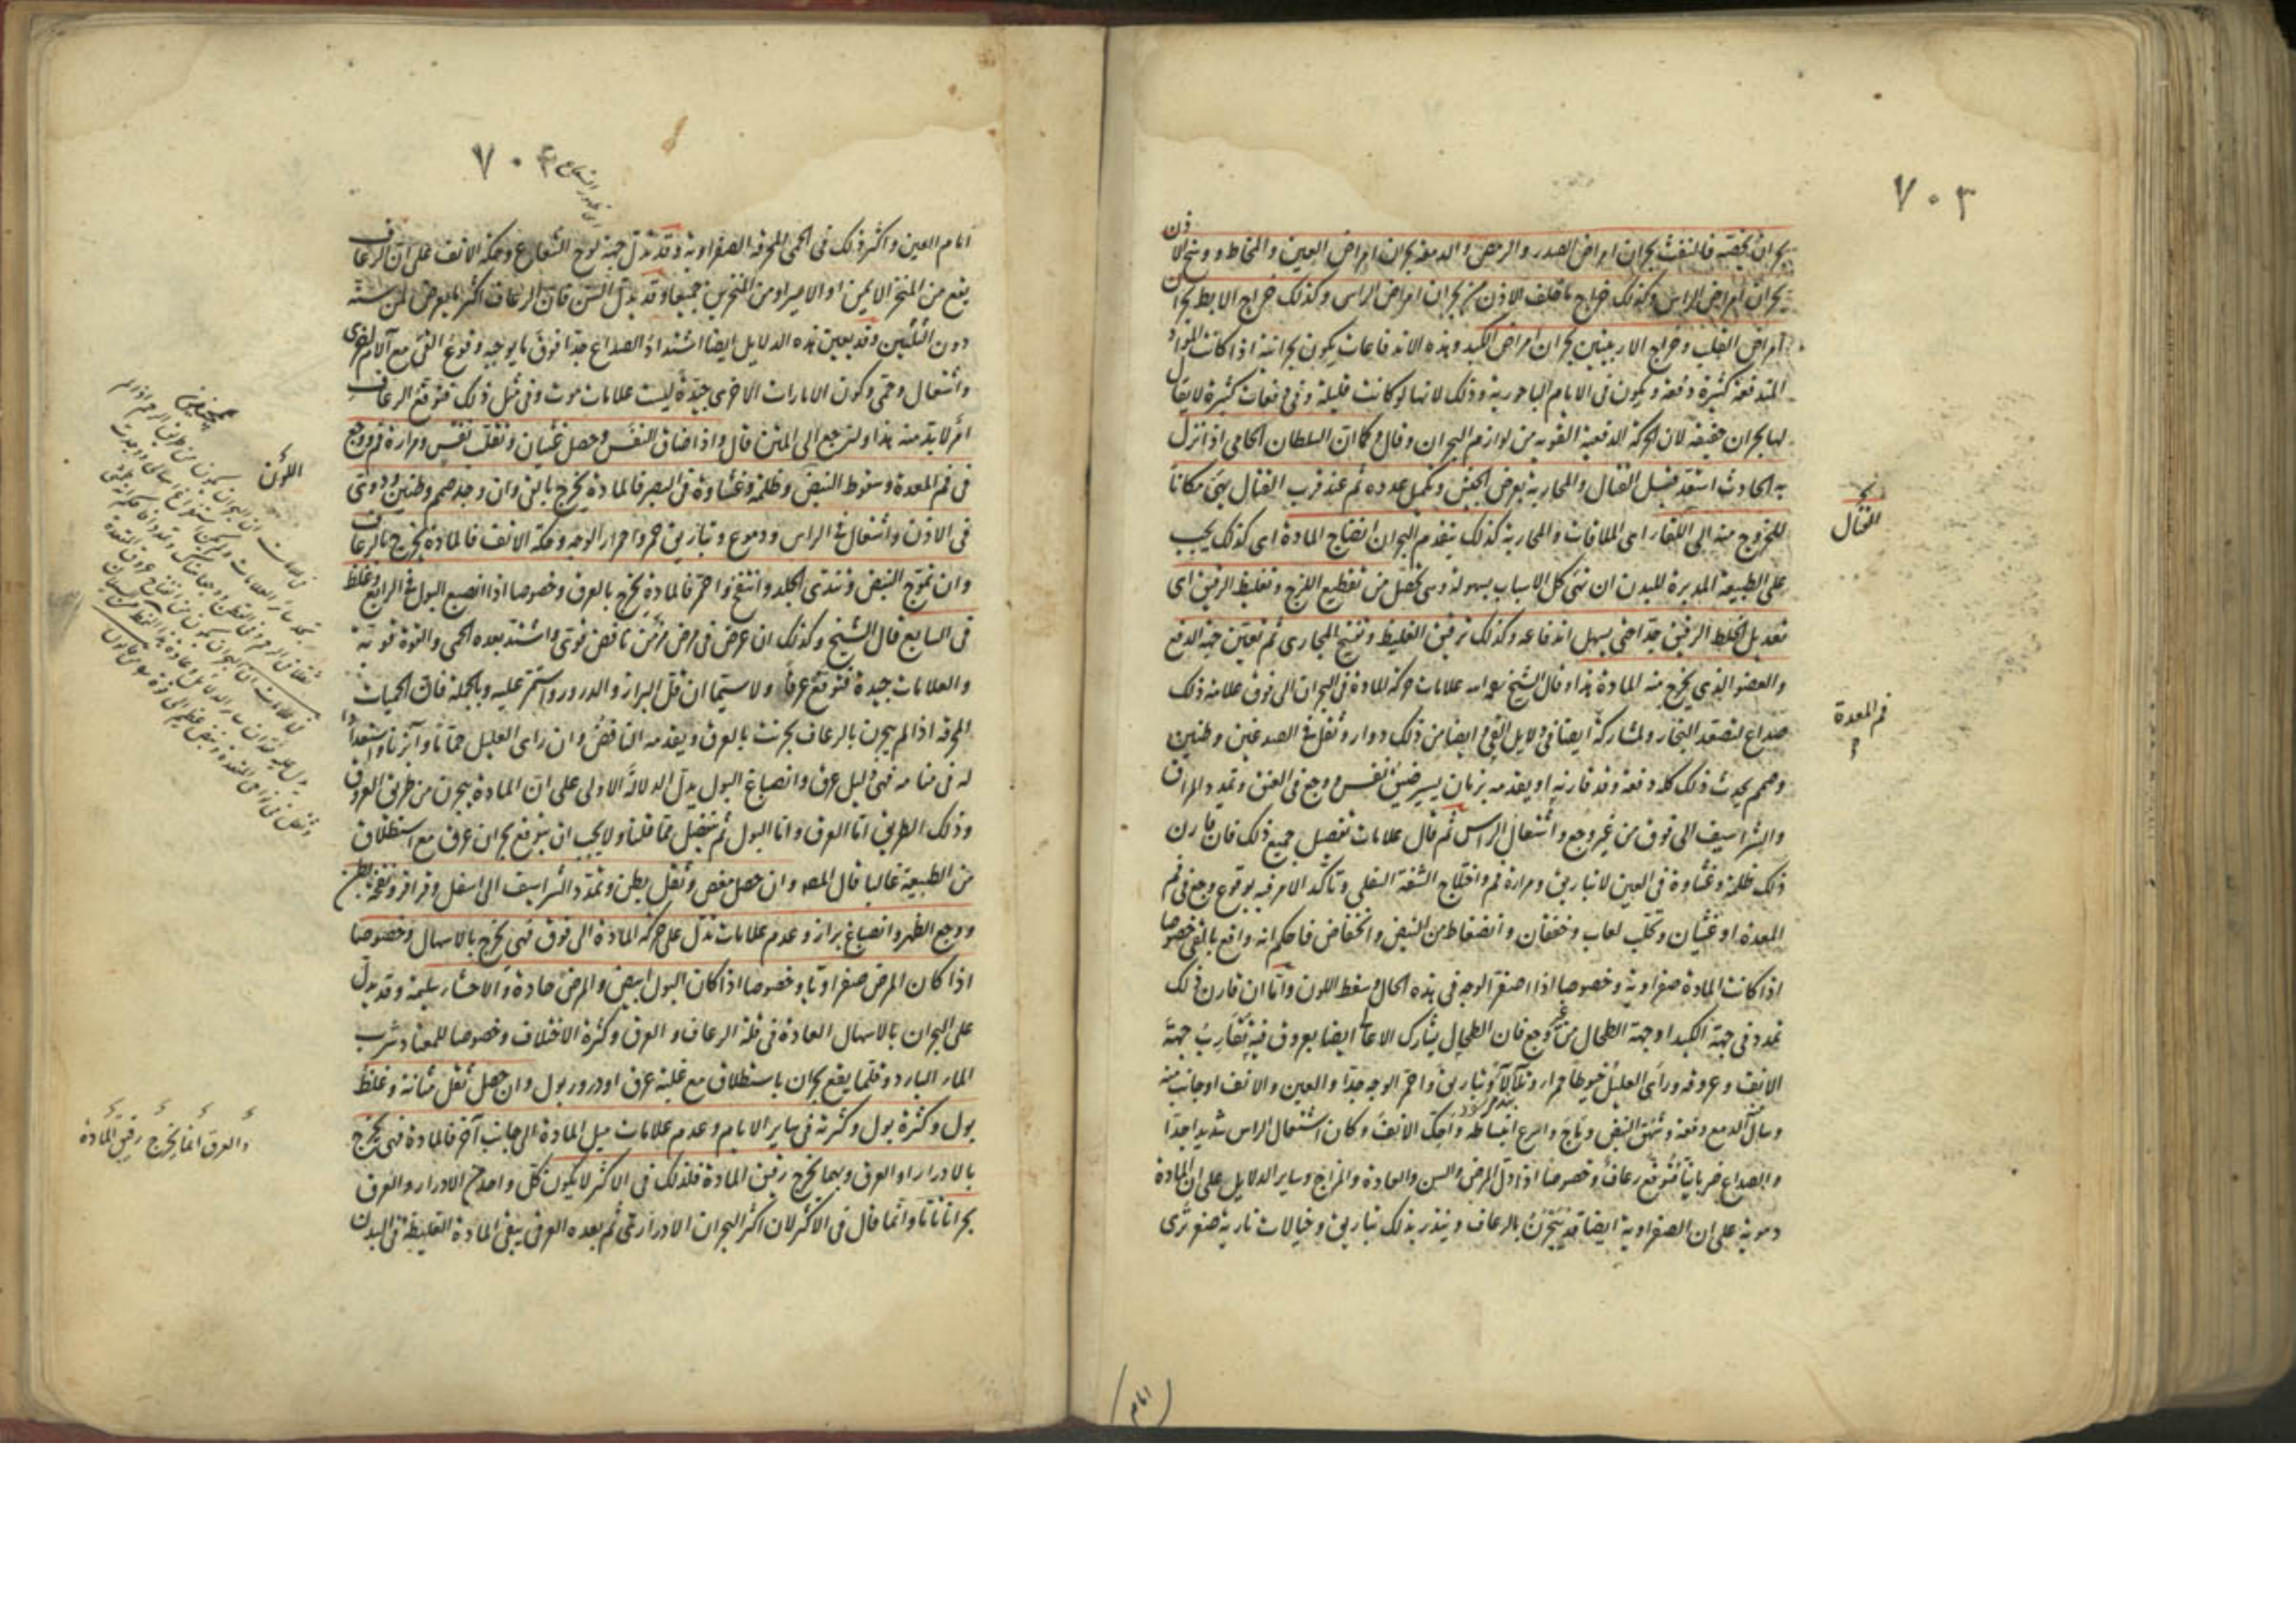 ٧٠٣
بحران يخصّه فالنفث بحران امراض الصدر والرمص والدمعة بحران امراض العين والمخاط ووسخ الاذن
بحران امراض الراس وكذلك خراج ما خلف الاذن بحران امراض الراس وكذلك خراج الابط بحران
امراض القلب وخراج الاربيتين بحران امراض الكبد وهذه الاندفاعات يكون بحرانية اذا كانت المواد
المندفعة كثيرة دفعة ويكون فى الايام الباحورية وذلك لانها لو كانت قليلة وفى دفعات كثيرة لا يقال
لها بحران حقيقة لان الحركة الدفعية القوية من لوازم البحران وقال وكما ان السلطان الحامى اذا نزل
به الحادث استعد قبل القتال والمحاربة بعرض الجيش وتكميل عدده ثم عند قرب القتال يهيئ مكانا
للخروج منه الى اللقاء اى الملاقات والمحاربة كذلك يتقدم البحران انضاج المادة اى كذلك يجب
على الطبيعة المدبرة للبدن ان تهيئ كل الاسباب بسهولة وسى تحصل من تقطيع اللزج وتغليظ الرقيق اى
تعديل الخلط الرقيق جدا حتى يسهل اندفاعه وكذلك ترقيق الغليظ وتفتيح المجارى ثم تعين جهة الدفع
والعضو الذى يخرج منه المادة هذا وقال الشيخ علامات حركة المادة فى البحران الى فوق علامة ذلك
صداع لتصعد البخار ولمشاركة ايضا فى دلايل القئ ايضا من ذلك دوار وثقل فى الصدغين وطنين
وصمم يحدث ذلك كله دفعة وقد قارنه او يقدمه بزمان يسير ضيق نفس ووجع فى العنق وتمدد المراق
والشراسيف الى فوق من غير وجع واشتعال الراس ثم قال علامات تفصيل جميع ذلك فان قارن
ذلك ظلمة وغشاوة فى العين لا تباريق ومرارة فم واختلاج الشفة السفلى وتاكد الامر فيه بوقوع وجع فى فم
المعدة او غثيان وتحلب لعاب وخفقان وانضغاط من النبض وانخفاض فاحكم انه واقع بالقئ خصوصا
اذا كانت المادة صفراوية وخصوصا اذا اصفر الوجه فى هذه الحال وسقط اللون واما ان قارن ذلك
تمدد فى جهة الكبد او جهة الطحال من غير وجع فان الطحال يشارك الاعا ايضا بعروق فيه تقارب جهة
الانف وعروقه وراى العليل خيوطا حمرا وتلالا وتباريق واحمر الوجه جدا والعين والانف او جانب منه
وسال الدمع دفعة وشهق النبض وماج واسرع انبساطه واحتك الانف وكان اشتعال الراس شديدا جدا
والصداع ضربانيا فتوقع رعاف وخصوصا اذا دل المرض والسن والعادة والمزاج وساير الدلايل على ان المادة
دموية على ان الصفراوية ايضا قد تبحرن بالرعاف وينذر بذلك تباريق وخيالات نارية صفر ترى
القتال
فم المعدة
امام
٧٠٤
امام العين واكثر ذلك فى الحمى المحرقة الصفراوية وقد تدل جهة لوح الشعاع وحكة الانف على ان الرعاف
يقع من المنخر الايمن او الايسر او من المنخرين جميعا وقد يدل السن فان الرعاف اكثر ما يعرض لمن سنه
دون الثلثين وقد يعين هذه الدلايل ايضا اشتداد الصداع جدا فوق ما يوجبه وقوع القئ مع آلام اخرى
واشتعال وحمى وكون الامارات الاخرى جيدة ليست علامات موت وفى مثل ذلك فتوقع الرعاف
امر لا بد منه هذا ولنرجع الى المتن قال واذا ضاق النفس وحصل غثيان وتقلب نفس ومرارة فم ووجع
فى فم المعدة وسقوط النبض وظلمة وغشاوة فى البصر فالمادة يخرج بالقئ وان وجد صمم وطنين ودوى
فى الاذن واشتعال فى الراس ودموع وتباريق حمر واحمرار الوجه وحكة الانف فالمادة يخرج بالرعاف
وان تموج النبض وتندى الجلد وانتفخ واحمر فالمادة يخرج بالعرق وخصوصا اذا انصبغ البول فى الرابع وغلظ
فى السابع قال الشيخ وكذلك ان عرض فى مرض مزمن ناقض قوى واشتد بعده الحمى والقوة قوية
والعلامات جيدة فتوقع عرقا ولا سيما ان قل البراز والدرور واستمر عليه وبالجملة فان الحميات
المحرقة اذا لم يبحرن بالرعاف بحرنت بالعرق ويقدمه النافض وان راى العليل حماما وابزنا واستعدادا
له فى منامه فهى دليل عرق وانصباغ البول يدل الدلالة الاولى على ان المادة يبحرن من طريق العروق
وذلك الطريق اما العرق واما البول ثم تفصل مما قلنا ولا يجب ان يتوقع بحران عرق مع استطلاق
من الطبيعة غالبا قال المصـ وان حصل مغص وثقل بطن وتمدد الشراسيف الى اسفل وقراقر ونفخة بطن
ووجع الظهر وانصباغ براز وعدم علامات تدل على حركة المادة الى فوق فهى يخرج بالاسهال وخصوصا
اذا كان المرض صفراويا وخصوصا اذا كان البول ابيض والمرض حادة والاحشاء سليمة وقد يدل
على البحران بالاسهال العادة فى قلة الرعاف والعرق وكثرة الاختلاف وخصوصا للمعتاد شرب
الماء البارد وقلما يقع بحران باستطلاق مع غلبة عرق او درور بول وان حصل ثقل مثانة وغلظ
بول وكثرة بول وكثرته فى ساير الايام وعدم علامات ميل المادة الى جانب آخر فالمادة فهى يخرج
بالادرار او العرق وبها يخرج رقيق المادة فلذلك فى الاكثر لا يكون كل واحد من الادرار والعرق
بحرانا تاما وانما قال فى الاكثر لان اكثر البحران الادرارى ثم بعده العرق يبقى المادة الغليظة فى البدن
اللون
والعرق انما يخرج رقيق المادة